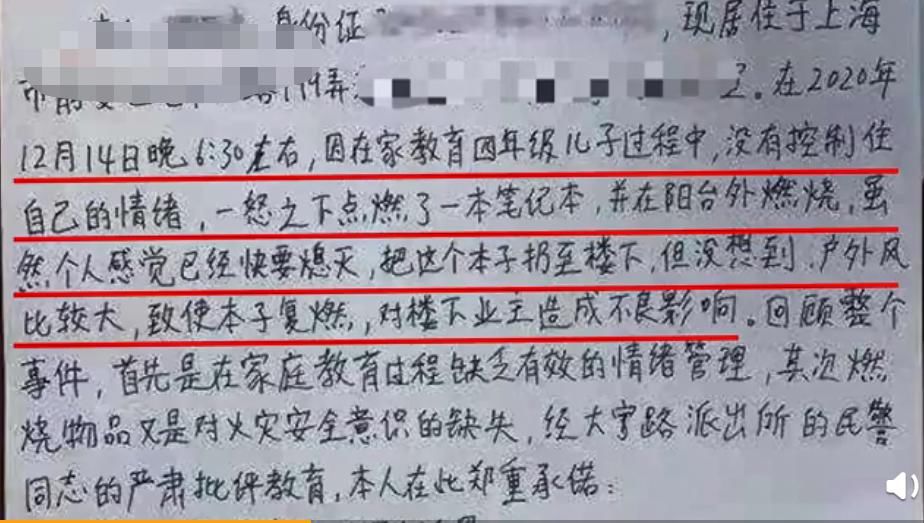 身份证 ，现居住于上海
119弄 。在2020年
12月14日晚6:30左右，因在家教育四年级儿子过程中，没有控制住
自己的情绪，一怒之下点燃了一本笔记本，并在阳台外燃烧，虽
然个人感觉已经快要熄灭，把这个本子扔至楼下，但没想到，户外风
比较大，致使本子复燃，对楼下业主造成不良影响。回顾整个
事件，首先是在家庭教育过程缺乏有效的情绪管理，其次燃
烧物品又是对火灾安全意识的缺失，经大宁路派出所的民警
同志的严肃批评教育，本人在此郑重承诺：